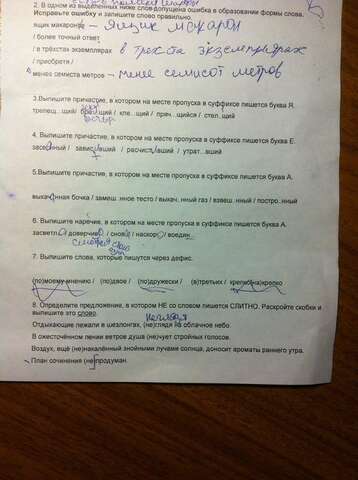 2. В одном из выделенных ниже слов допущена ошибка в образовании формы слова.
Исправьте ошибку и запишите слово правильно.
ящик макарон – ящик макарон
/ более точный ответ
/ в трёхстах экземплярах в трехста экземплярах
/ приобретя /
менее семиста метров – менее семисот метров
3.Выпишите причастие, в котором на месте пропуска в суффиксе пишется буква Я.
трепещ...щий/ бре щий / кле...щий / пряч...щийся / стел..щий
4. Выпишите причастие, в котором на месте пропуска в суффиксе пишется буква Е.
засе нный / завис вший / расчист..вший / утрат...вший
5.Выпишите причастие, в котором на месте пропуска в суффиксе пишется буква А.
выкачанная бочка / замеш..нное тесто / выкач..нный газ / взвеш..нный / постро..нный
6. Выпишите наречие, в котором на месте пропуска в суффиксе пишется буква А.
засветл о доверчиво / снова / наскоро / воедин..
7. Выпишите слова, которые пишутся через дефис.
(по)моему мнению / (по)двое / (по)дружески / (в)третьих / крепко(на)крепко
8. Определите предложение, в котором НЕ со словом пишется СЛИТНО. Раскройте скобки и
выпишите это слово.
Отдыхающие лежали в шезлонгах, (не)глядя на облачное небо.
В ожесточённом пении ветров душа (не)чует стройных голосов.
Воздух, ещё (не)накалённый знойными лучами солнца, доносит ароматы раннего утра.
План сочинения (не)продуман.